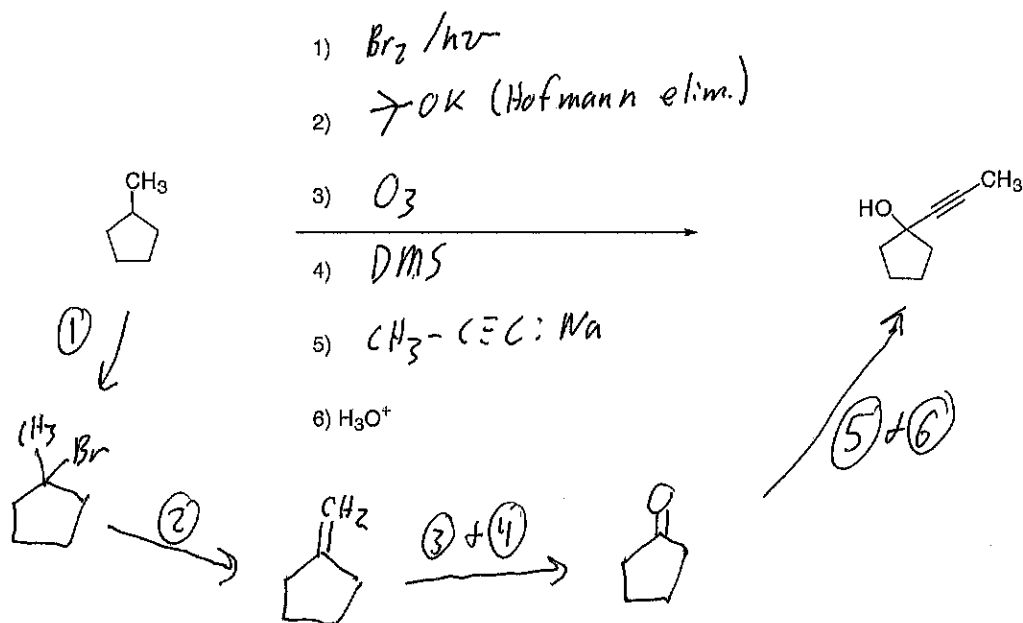 1) Br₂ /hν
2) OK (Hofmann elim.)
CH₃
3) O₃
CH₃
HO
4) DMS
①
5) CH₃-C≡C:Na
6) H₃O⁺
⑤+⑥
CH₃
Br
②
CH₂
③+④
O